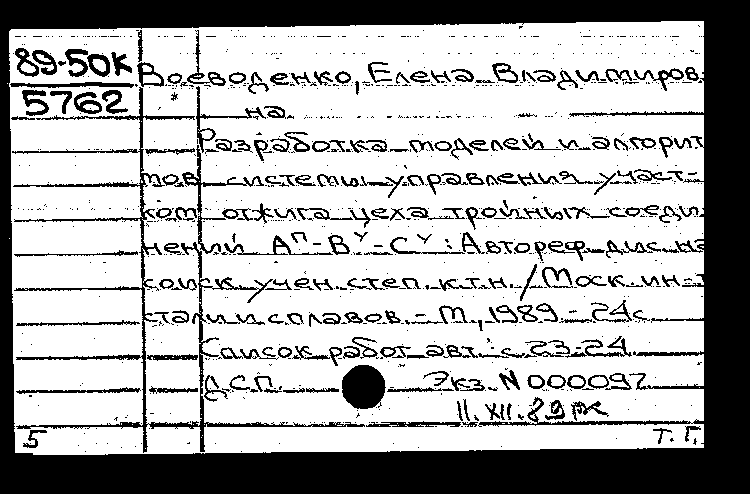 89-50К Воеводенко, Елена Владимиров-
5762 на.
Разработка моделей и алгорит
мов системы управления участ-
ком отжига цеха тройных соеди-
нений Аᴨ-Вʸ-Сʸ: Автореф. дис. на
соиск. учен. степ. к.т.н. / Моск. ин-т
стали и сплавов. - М., 1989. - 24с
Список работ авт.: с. 23-24
ДСП. Экз. N 000097
11.XII.89
5 Т. Г.